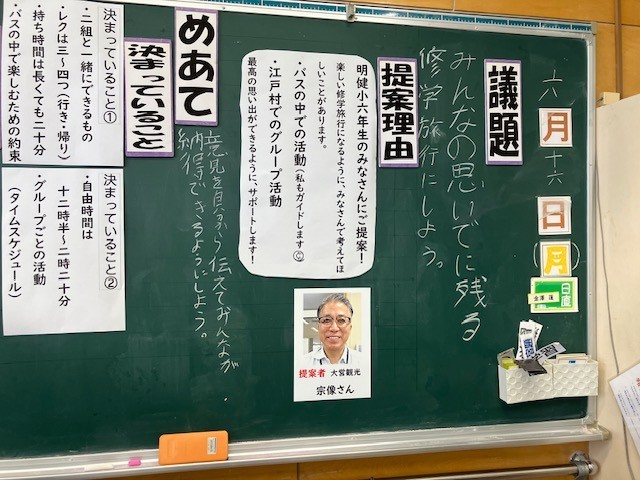 六月十六日(月)
日直
議題
みんなの思いでに残る
修学旅行にしよう。
提案理由
明健小六年生のみなさんにご提案!
楽しい修学旅行になるように、みなさんで考えてほ
しいことがあります。
・バスの中での活動(私もガイドします☺)
・江戸村でのグループ活動
最高の思い出ができるように、サポートします!
提案者 大営観光
宗像さん
めあて
意見を自分から伝えてみんなが
納得できるようにしよう。
決まっていること
決まっていること①
・二組と一緒にできるもの
・レクは三~四つ(行き・帰り)
・持ち時間は長くても二十分
・バスの中で楽しむための約束
決まっていること②
・自由時間は
十二時半~二時二十分
・グループごとの活動
(タイムスケジュール)